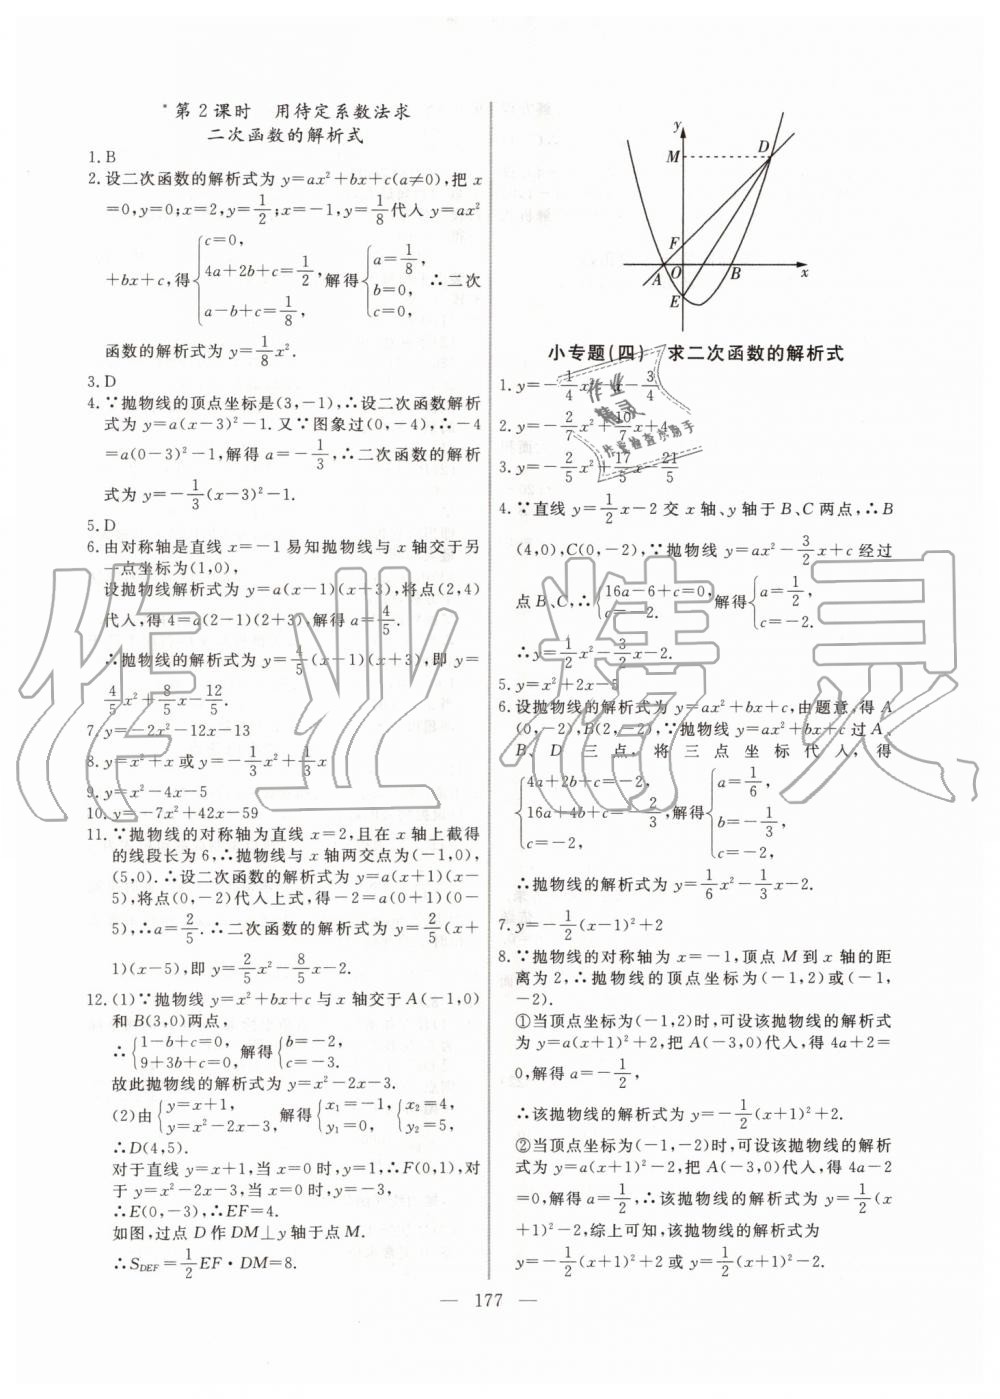 第2课时　用待定系数法求
二次函数的解析式
1. B
2. 设二次函数的解析式为 y=ax²+bx+c(a≠0),把 x
=0,y=0;x=2,y=1/2;x=-1,y=1/8代入 y=ax²
+bx+c,得{c=0, 4a+2b+c=1/2, a-b+c=1/8, 解得{a=1/8, b=0, c=0, ∴二次
函数的解析式为 y=1/8x².
3. D
4. ∵抛物线的顶点坐标是(3,-1),∴设二次函数解析
式为 y=a(x-3)²-1.又∵图象过(0,-4),∴-4
=a(0-3)²-1,解得 a=-1/3,∴二次函数的解析
式为 y=-1/3(x-3)²-1.
5. D
6. 由对称轴是直线 x=-1 易知抛物线与 x 轴交于另
一点坐标为(1,0),
设抛物线解析式为 y=a(x-1)(x+3),将点(2,4)
代人,得 4=a(2-1)(2+3),解得 a=4/5.
∴抛物线的解析式为 y=4/5(x-1)(x+3),即 y=
4/5x²+8/5x-12/5.
7. y=-2x²-12x-13
8. y=x²+x 或 y=-1/3x²+1/3x
9. y=x²-4x-5
10. y=-7x²+42x-59
11. ∵抛物线的对称轴为直线 x=2,且在 x 轴上截得
的线段长为 6,∴抛物线与 x 轴两交点为(-1,0),
(5,0).∴设二次函数的解析式为 y=a(x+1)(x-
5),将点(0,-2)代人上式,得-2=a(0+1)(0-
5),∴a=2/5.∴二次函数的解析式为 y=2/5(x+
1)(x-5),即 y=2/5x²-8/5x-2.
12. (1)∵抛物线 y=x²+bx+c 与 x 轴交于 A(-1,0)
和 B(3,0)两点,
∴{1-b+c=0, 9+3b+c=0, 解得{b=-2, c=-3.
故此抛物线的解析式为 y=x²-2x-3.
(2)由{y=x+1, y=x²-2x-3, 解得{x₁=-1, y₁=0, {x₂=4, y₂=5,
∴D(4,5).
对于直线 y=x+1,当 x=0 时,y=1,∴F(0,1),对
于 y=x²-2x-3,当 x=0 时,y=-3,
∴E(0,-3),∴EF=4.
如图,过点 D 作 DM⊥y 轴于点 M.
∴S_DEF=1/2EF·DM=8.
y
M
D
F
A O B x
E
小专题(四)　求二次函数的解析式
1. y=-1/4x²-x-3/4
2. y=-2/7x²+10/7x+4
3. y=-2/5x²+17/5x-21/5
4. ∵直线 y=1/2x-2 交 x 轴、y 轴于 B、C 两点,∴B
(4,0),C(0,-2),∵抛物线 y=ax²-3/2x+c 经过
点 B、C,∴{16a-6+c=0, c=-2. 解得{a=1/2, c=-2.
∴y=1/2x²-3/2x-2.
5. y=x²+2x-5
6. 设抛物线的解析式为 y=ax²+bx+c,由题意,得 A
(0,-2),B(2,-2),∵抛物线 y=ax²+bx+c 过 A、
B、D 三点,将三点坐标代人,得
{4a+2b+c=-2, 16a+4b+c=-2/3, c=-2, 解得{a=1/6, b=-1/3, c=-2,
∴抛物线的解析式为 y=1/6x²-1/3x-2.
7. y=-1/2(x-1)²+2
8. ∵抛物线的对称轴为 x=-1,顶点 M 到 x 轴的距
离为 2,∴抛物线的顶点坐标为(-1,2)或(-1,
-2).
①当顶点坐标为(-1,2)时,可设该抛物线的解析式
为 y=a(x+1)²+2,把 A(-3,0)代人,得 4a+2=
0,解得 a=-1/2,
∴该抛物线的解析式为 y=-1/2(x+1)²+2.
②当顶点坐标为(-1,-2)时,可设该抛物线的解析
式为 y=a(x+1)²-2,把 A(-3,0)代人,得 4a-2
=0,解得 a=1/2,∴该抛物线的解析式为 y=1/2(x
+1)²-2,综上可知,该抛物线的解析式为
y=-1/2(x+1)²+2 或 y=1/2(x+1)²-2.
— 177 —
作业精灵
作业
精灵
作业检查小助手